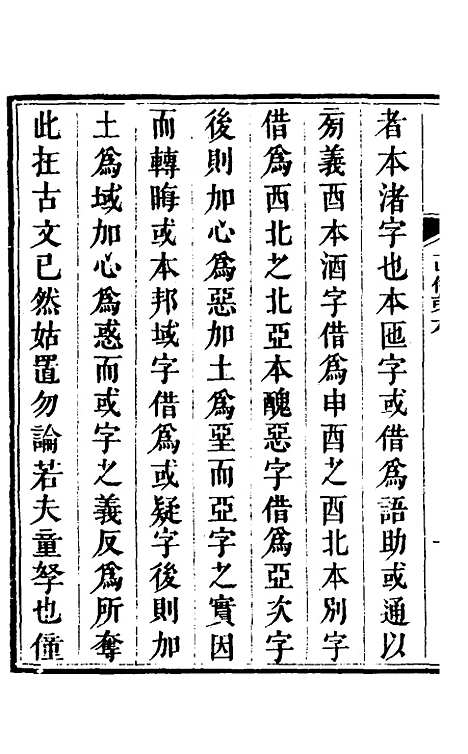 者本渚字也本匜字或借爲語助或通以
別義酉本酒字借爲申酉之酉北本別字
借爲西北之北亞本醜惡字借爲亞次字
後則加心爲惡加土爲堊而亞字之實因
而轉晦或本邦域字借爲或疑字後則加
土爲域加心爲惑而或字之義反爲所奪
此在古文已然姑置勿論若夫童孥也僮